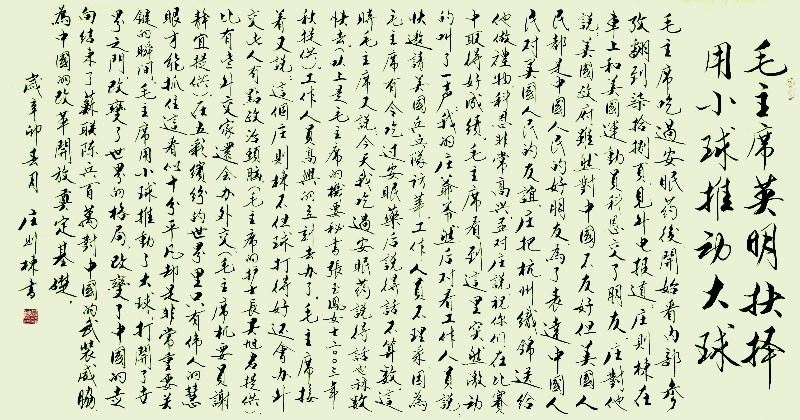 毛主席英明抉择
用小球推动大球
毛主席吃過安眠药後開始看内部参
攷翻到柒拾捌頁見外电报道庄则棟在
車上和美國運動員科恩交了朋友庄對他
説美國政府雖然對中國不友好但美國人
民都是中國人民的好朋友為了表達中國人
民对美國人民的友誼庄把杭州織錦送给
他做禮物科恩非常高兴並对庄説祝你們在比賽
中取得好成績毛主席看到這里突然激动
的叫了一声我的庄爺爺然后对看工作人員説
快邀請美國乒乓隊訪華工作人員不理采因為
毛主席有令吃过安眠藥后説得話不算數這
時毛主席又説今天我吃過安眠药説得話也算数
快去(以上是毛主席的機要秘書張玉鳳女士二00三年
秋提供)工作人員高興的立刻去办了毛主席接
着又説這個庄则棟不但球打得好还會办外
交此人有點政治頭腦(毛主席的护士長吴旭君提供)
比有些外交家還会办外交(毛主席机要員謝
静宜提供)在五彩繽纷的世界里只有偉人的慧
眼才能抓住這看似十分平凡却是非常重要关
鍵的瞬间毛主席用小球推動了大球打開了世
界之門改變了世界的格局改變了中國的走
向结束了蘇联陈兵百萬對中國的武装威脇
為中國的改革開放奠定基礎
歲辛卯春月 庄则棟書